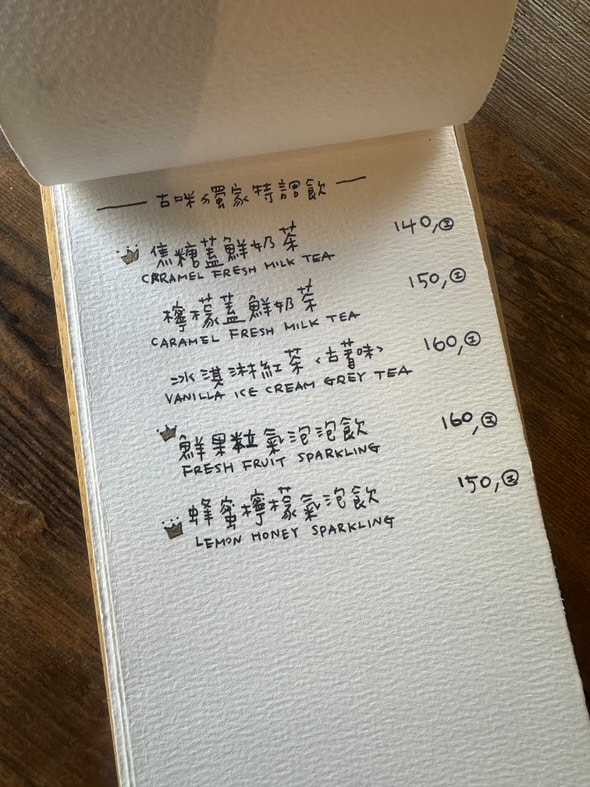 古咪ㄉ獨家特調飲
焦糖蓋鮮奶茶 140,
CARAMEL FRESH MILK TEA
檸檬蓋鮮奶茶 150,
CARAMEL FRESH MILK TEA
冰淇淋紅茶〈古早味〉 160,
VANILLA ICE CREAM GREY TEA
鮮果粒氣泡飲 160,
FRESH FRUIT SPARKLING
蜂蜜檸檬氣泡飲 150,
LEMON HONEY SPARKLING